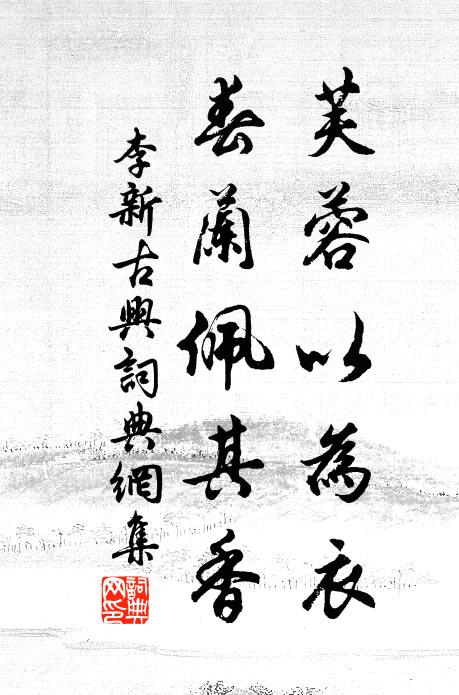 芙蓉以為衣
春蘭佩其香
李新古典詞典網集